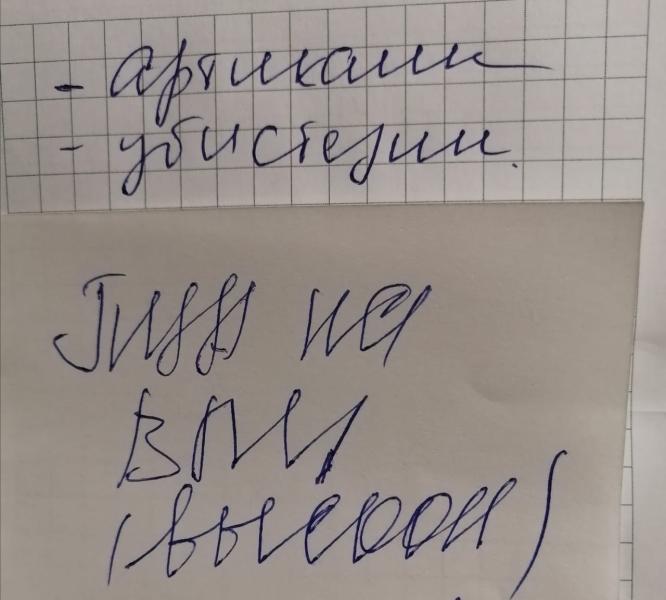 - артикаин
- убистезин.
на
ВПЧ
(высоон)